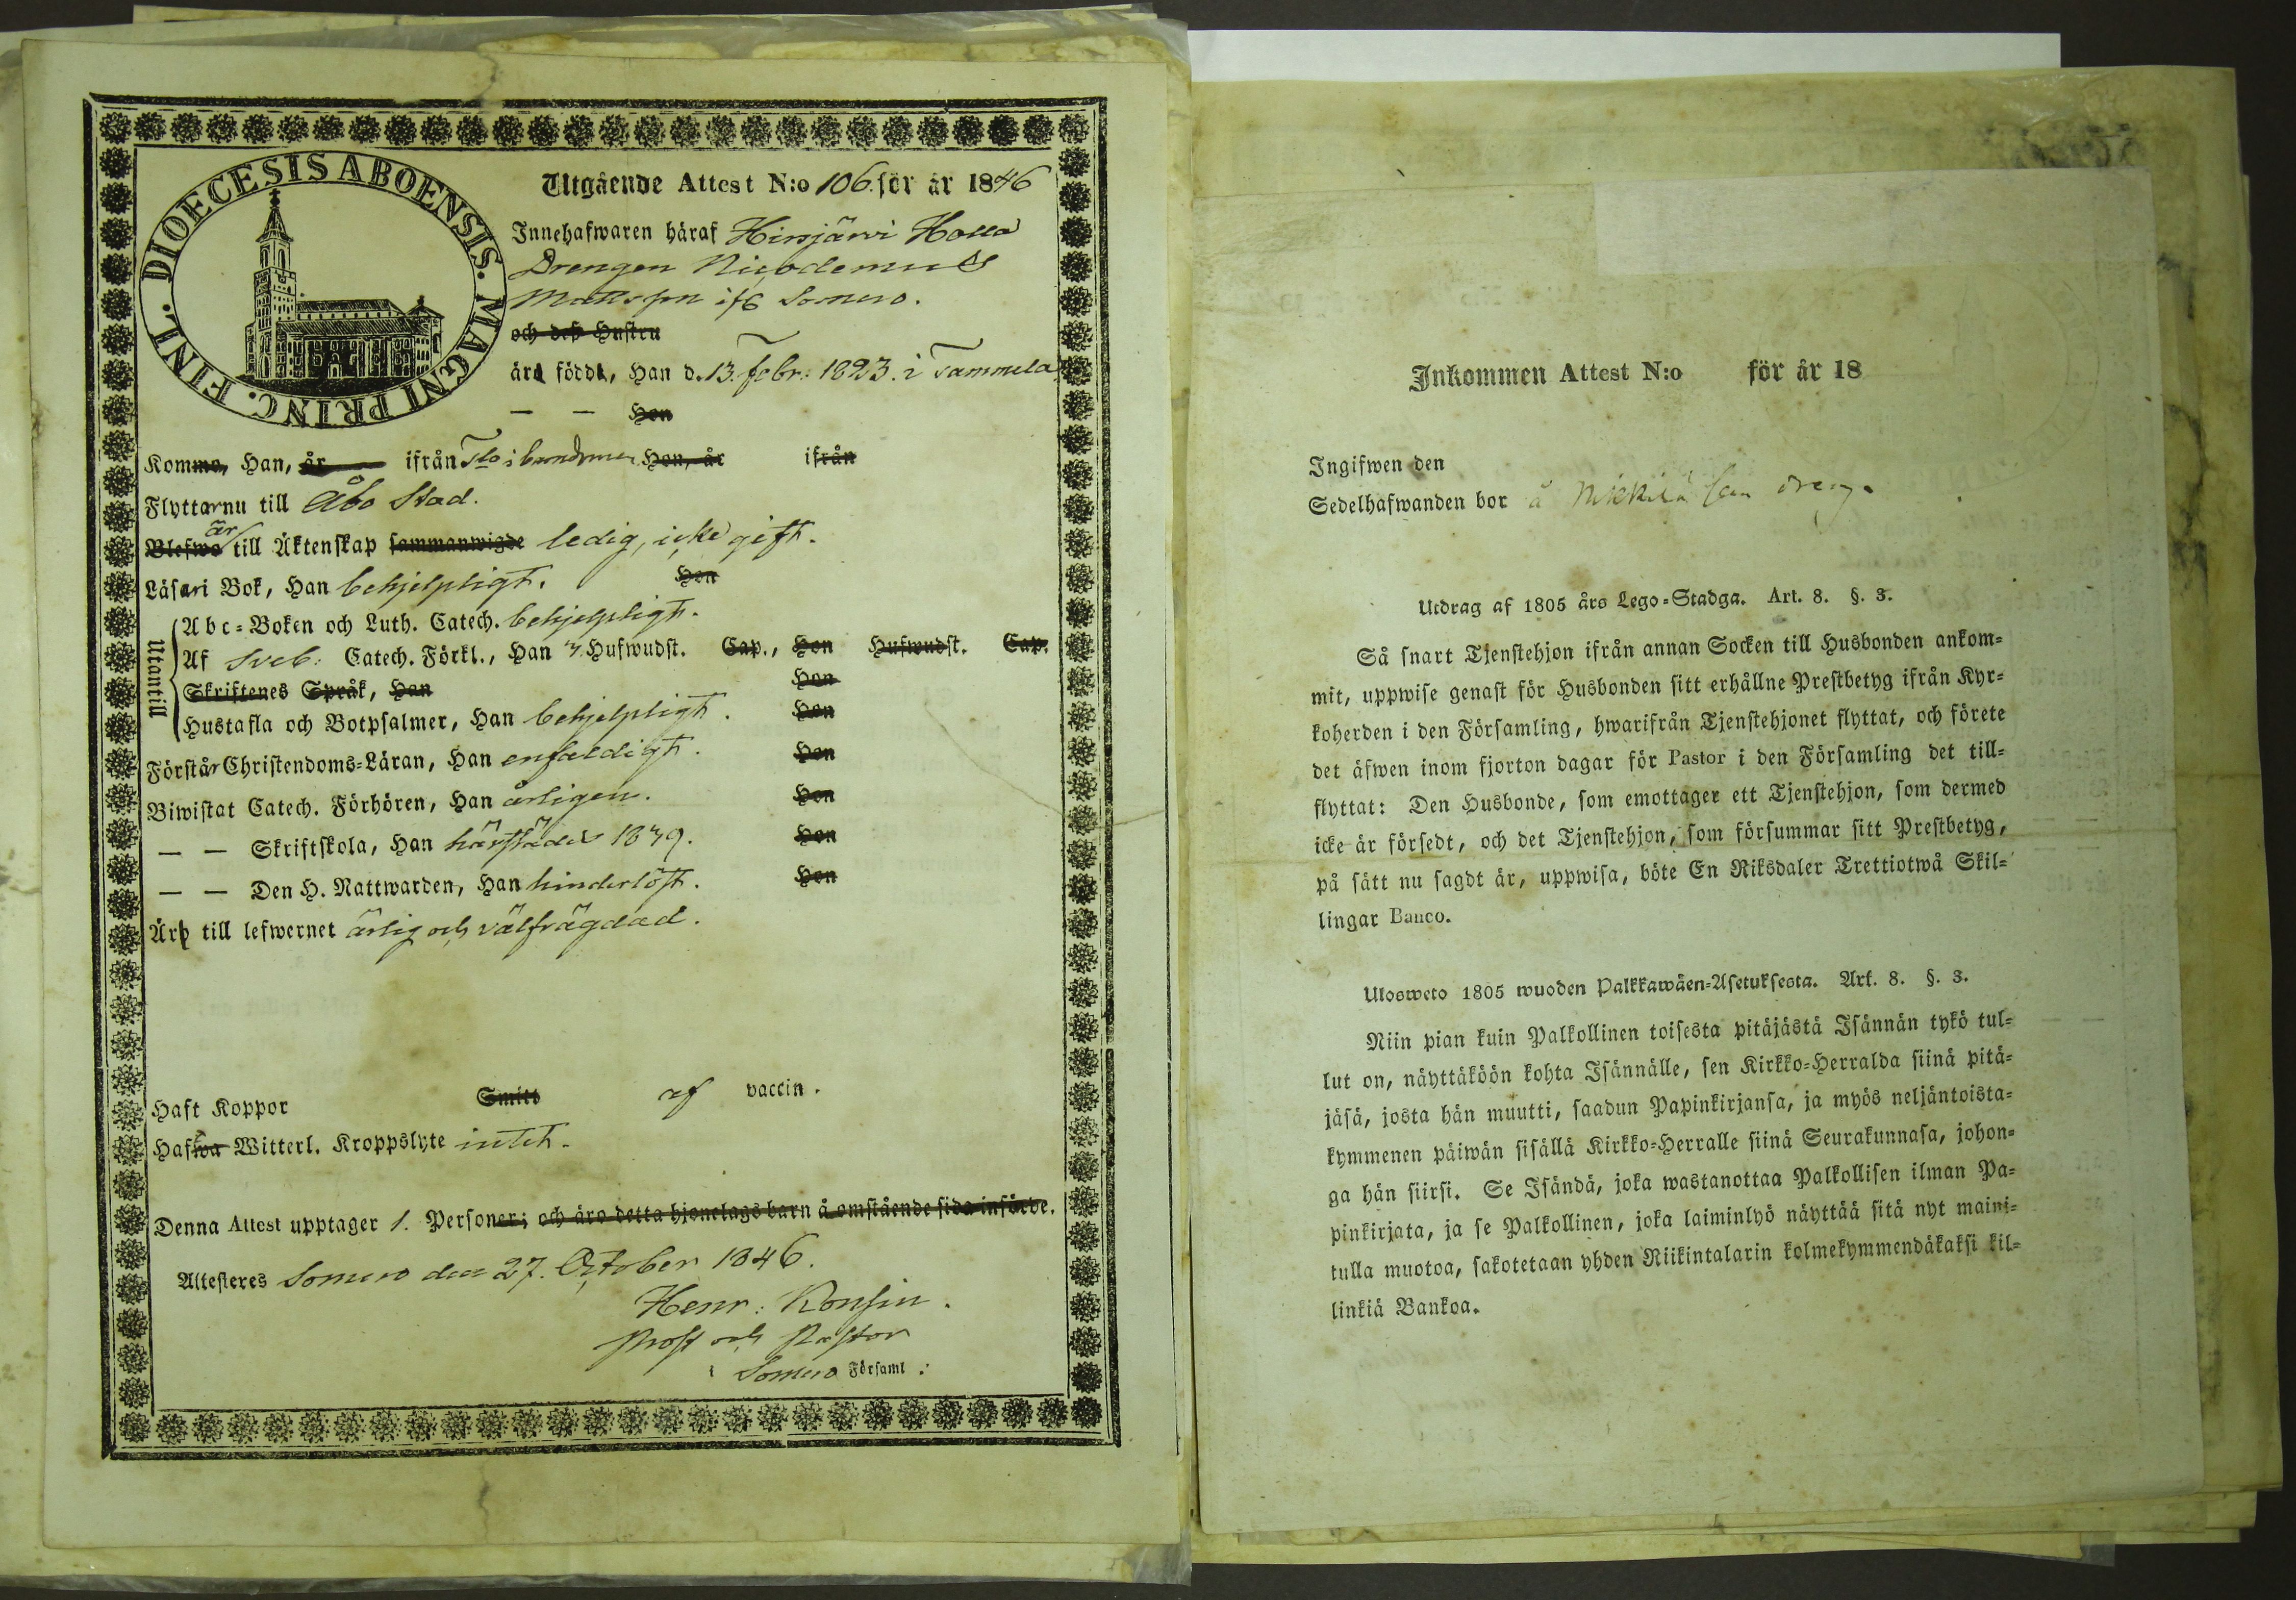 DIOECESIS ABOENSIS. MAGNI PRINC. FINL.
Utgående Attest N:o 106. för år 1846
Innehafwaren häraf Hirsjärvi Holla
Drengen Nicodemus
Matts son ifr Somero.
och deß Hustru
äro födde, Han d. 13. Febr: 1823. i Tammela
— — Hon
Komma, Han, år ifrån Hon, år ifrån
Flyttar nu till Åbo Stad.
är
Blefwo till Äktenskap sammanwigde ledig, icke gift.
Läsa i Bok, Han behjelpligt. Hon
Utantill
Abc-Boken och Luth. Catech. behjelpligt.
Af Sveb: Catech. Förkl., Han 3 Hufwudst. Cap., Hon Hufwudst. Cap.
Skriftenes Språk, Han Hon
Hustafla och Botpsalmer, Han behjelpligt. Hon
Förstår Christendoms-Läran, Han enfaldigt. Hon
Biwistat Catech. Förhören, Han årligen. Hon
— — Skriftskola, Han härstädes 1839. Hon
— — Den H. Nattwarden, Han hinderlöst. Hon
Äro till lefwernet ärlig och välfrägdad.
Haft Koppor Smitt af vaccin.
Hafwa Witterl. Kroppslyte intet.
Denna Attest upptager 1. Personer; och äro detta hjonelags barn å omstående sida införde.
Attesteres Somero den 27. October 1846.
Henr: Konsin.
Prost och Pastor
i Somero Församl.
Inkommen Attest N:o för år 18
Ingifwen den
Sedelhafwanden bor å Nikkilä dreng.
Utdrag af 1805 års Lego-Stadga. Art. 8. §. 3.
Så snart Tjenstehjon ifrån annan Socken till Husbonden ankom-
mit, uppwise genast för Husbonden sitt erhållne Prestbetyg ifrån Kyr-
koherden i den Församling, hwarifrån Tjenstehjonet flyttat, och förete
det äfwen inom fjorton dagar för Pastor i den Församling det till-
flyttat: Den Husbonde, som emottager ett Tjenstehjon, som dermed
icke är försedt, och det Tjenstehjon, som försummar sitt Prestbetyg,
på sätt nu sagdt är, uppwisa, böte En Riksdaler Trettiotwå Skil-
lingar Banco.
Ulosweto 1805 wuoden Palkkawäen-Asetuksesta. Art. 8. §. 3.
Niin pian kuin Palkollinen toisesta pitäjästä Isännän tykö tul-
lut on, näyttäköön kohta Isännälle, sen Kirkko-Herralda siinä pitä-
jäsä, josta hän muutti, saadun Papinkirjansa, ja myös neljäntoista-
kymmenen päiwän sisällä Kirkko-Herralle siinä Seurakunnasa, johon-
ga hän siirsi. Se Isändä, joka wastanottaa Palkollisen ilman Pa-
pinkirjata, ja se Palkollinen, joka laiminlyö näyttää sitä nyt maini-
tulla muotoa, sakotetaan yhden Riikintalarin kolmekymmendäkaksi kil-
linkiä Bankoa.